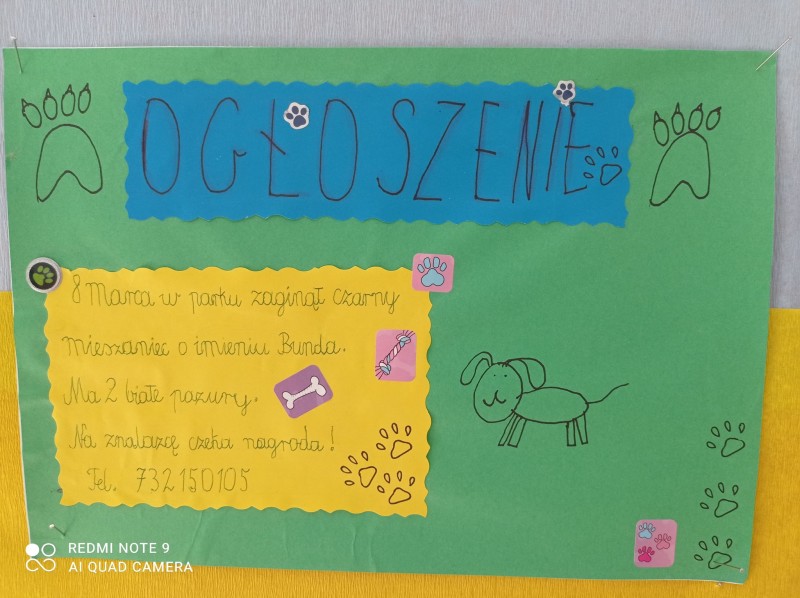 OGŁOSZENIE
8 Marca w parku zaginął czarny
mieszaniec o imieniu Bunda.
Ma 2 białe pazury.
Na znalazcę czeka nagroda!
Tel. 732150105
REDMI NOTE 9
AI QUAD CAMERA